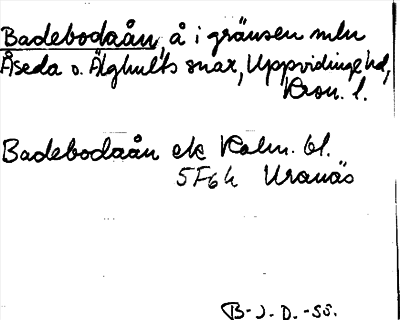 Badebodaån, å i gränsen mln
Åseda o. Älghults snar, Uppvidinge hd,
Kron. l.
Badebodaån ek Kalm. bl.
5F6h Uranäs
B-J-D.-SS.